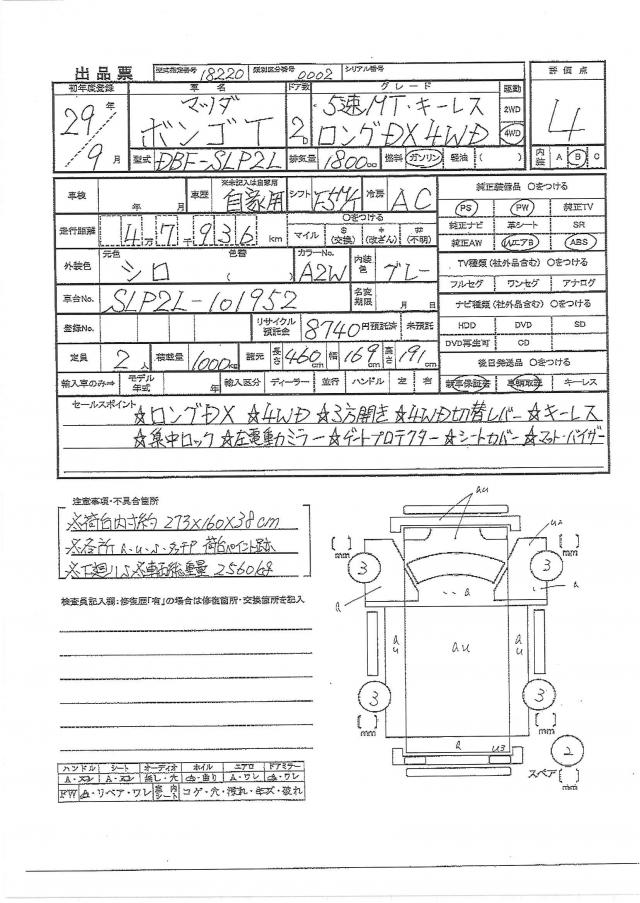 出品票 型式指定番号 18220 類別区分番号 0002 シリアル番号
評価点
4
内装 A B C
初年度登録 車名 ドア数 グレード 駆動
29年 9月
マツダ ボンゴT 2D 5速MT・キーレス ロングDX 4WD
2WD 4WD
型式 DBF-SLP2L 排気量 1800cc 燃料 ガソリン 軽油 ( )
車検 年 月 車歴 ※未記入は自家用 自家用 シフト F5M/T 冷房 AC
走行距離 4万7千936 km ○をつける マイル $(交換) *(改ざん) #(不明)
外装色 元色 シロ 色替 ( ) カラーNo. A2W 内装色 グレー
車台No. SLP2L-101952 名変期限 月 日
登録No. リサイクル預託金 8740円預託済 未預託
定員 2人 積載量 1000kg 諸元 長さ460cm 幅169cm 高さ191cm
輸入車のみ⇒ モデル年式 年 輸入区分 ディーラー 並行 ハンドル 左 右
純正装備品 ○をつける
PS PW 純正TV
純正ナビ 革シート SR
純正AW WエアB ABS
TV種類(社外品含む) ○をつける
フルセグ ワンセグ アナログ
ナビ種類(社外品含む) ○をつける
HDD DVD SD
DVD再生可 CD
後日発送品 ○をつける
新車保証書 車輌取説 キーレス
セールスポイント ☆ロングDX ☆4WD ☆3方開き ☆4WD切替レバー ☆キーレス
☆集中ロック ☆左電動カミラー ☆ゲートプロテクター ☆シートカバー ☆マット・バイザー
注意事項・不具合箇所
※荷台内寸約 273×160×38cm
※各所 A・U・S・タッチP 荷台ペイント跡
※下廻りS ※車輌総重量 2560kg
検査員記入欄:修復歴「有」の場合は修復箇所・交換箇所を記入
ハンドル シート オーディオ ホイル エアロ ドアミラー
A・スレ A・スレ 無し・穴 A・曲り A・ワレ A・ワレ
FW A・リペア・ワレ 室内シート コゲ・穴・汚れ・キズ・破れ
au
u2
[ ]mm 3 3 [ ]mm
a a a
au au au
3 3
[ ]mm [ ]mm
a u3
2
スペア [ ]mm